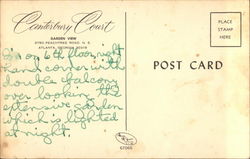 Canterbury Court
GARDEN VIEW
3750 PEACHTREE ROAD, N. E.
ATLANTA, GEORGIA 30319
I'm on 6th floor, right
hand corner with
double balcony
over looking the
extensive garden
which is lighted
at night.
POST CARD
PLACE
STAMP
HERE